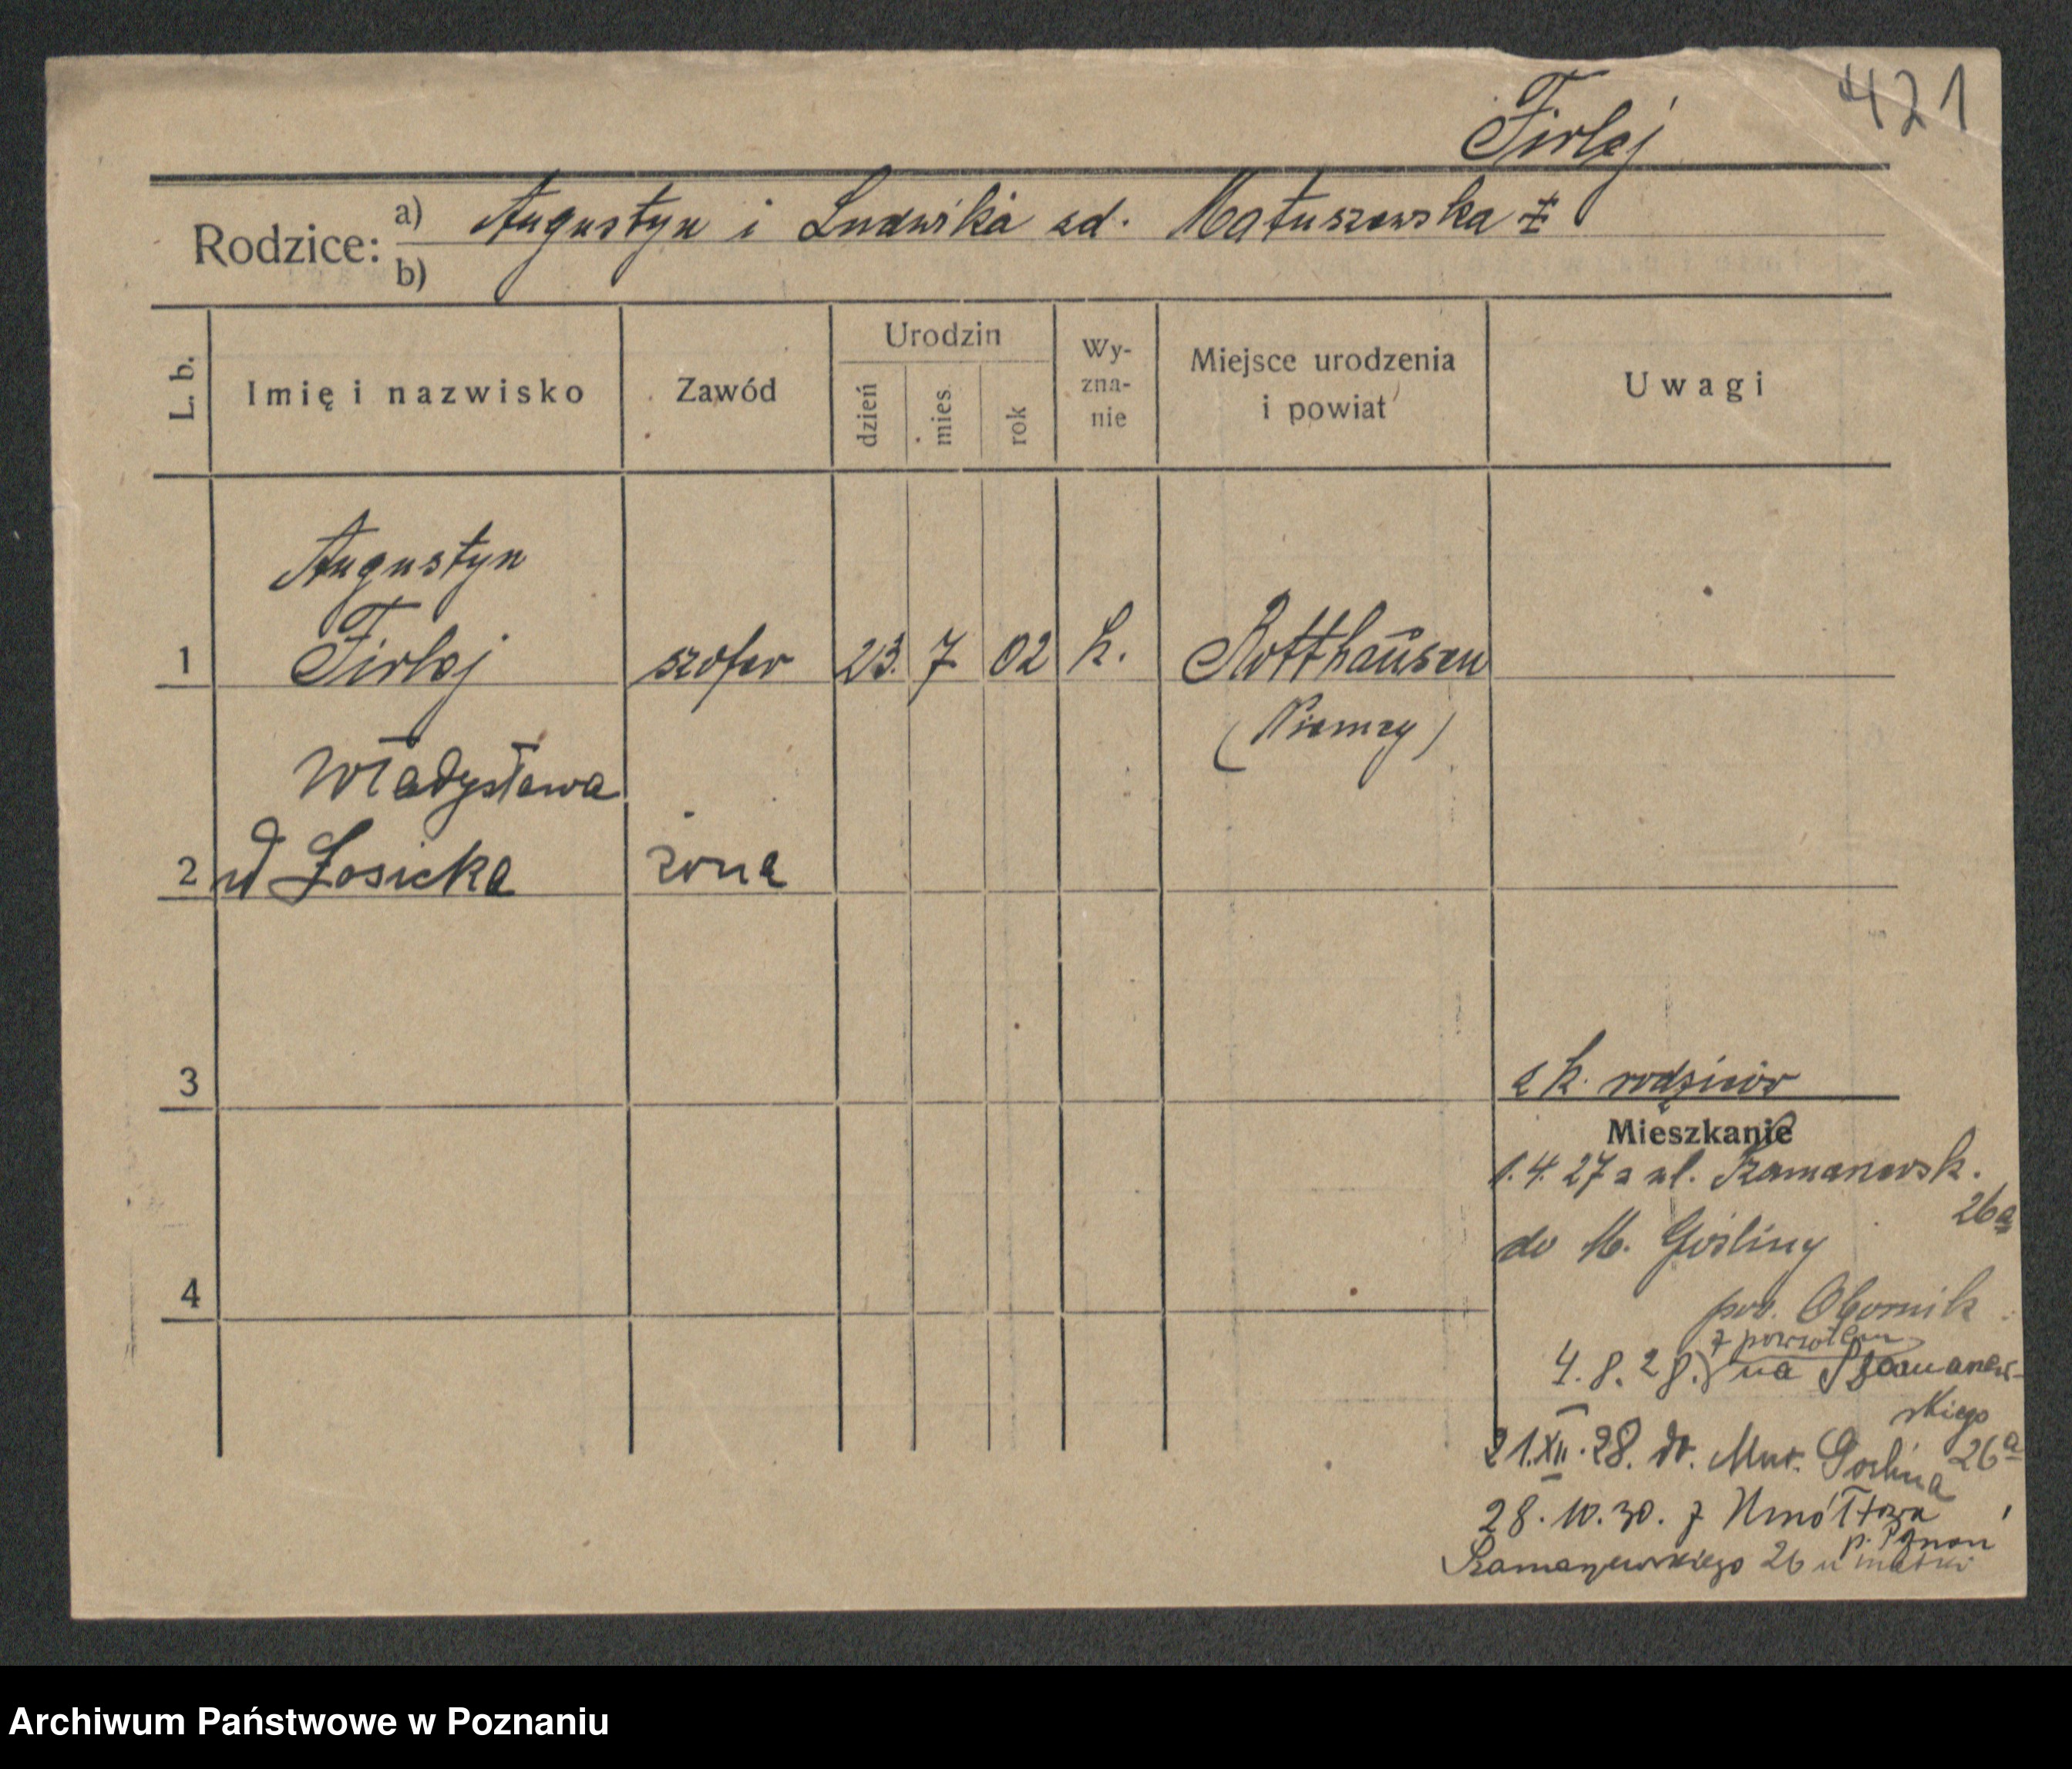 421
Firlej
Rodzice: a) Augustyn i Ludwika zd. Matuszewska
b)
L. b.
Imię i nazwisko
Zawód
Urodzin
dzień
mies.
rok
Wy-
zna-
nie
Miejsce urodzenia
i powiat
Uwagi
Augustyn
1 Firlej szofer 23. 7 02 k. Rotthausen
(Niemcy)
Władysława
2 Łosicka żona
3
z k. rodziców
Mieszkanie
1.4.27 z ul. Szamarzewsk.
26a
do M. Gośliny
4
pow. Obornik
z powrotem
4.8.28. na Szamarzew-
skiego
26a
21.XII.28. do. Mur. Goslina
28.10.30. z
p. Poznań
Szamarzewskiego 26 u matki
Archiwum Państwowe w Poznaniu